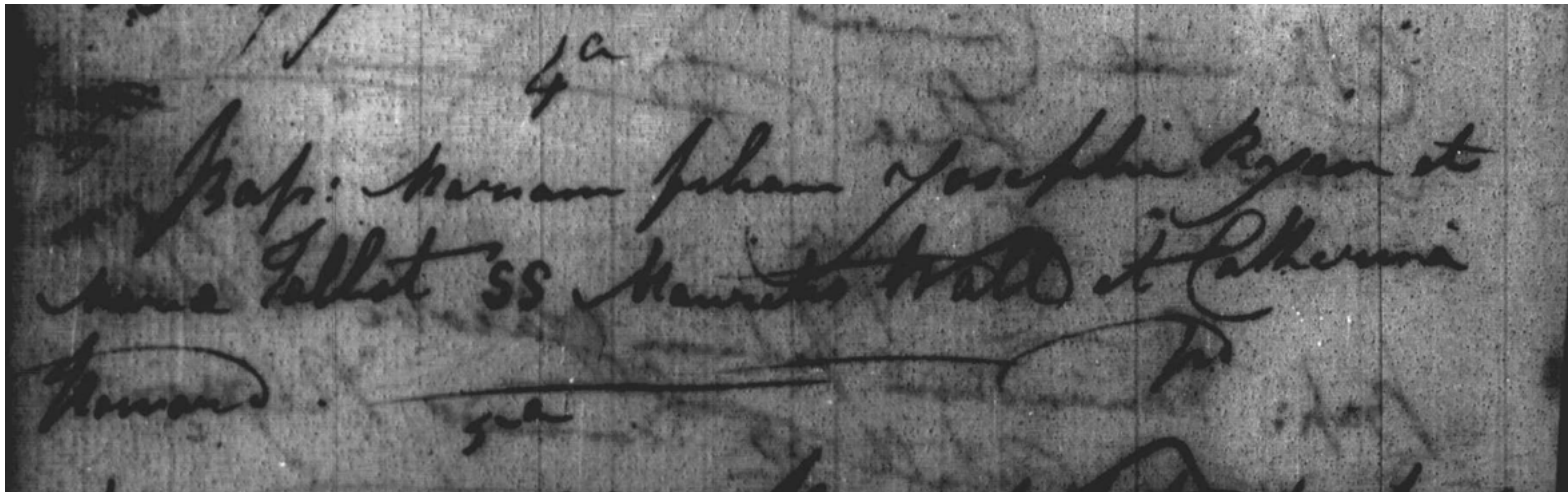 4a
Bap: Mariam filiam Josephi Ryan et
Maria Talbot SS Mauritius Wall et Catherina
5a